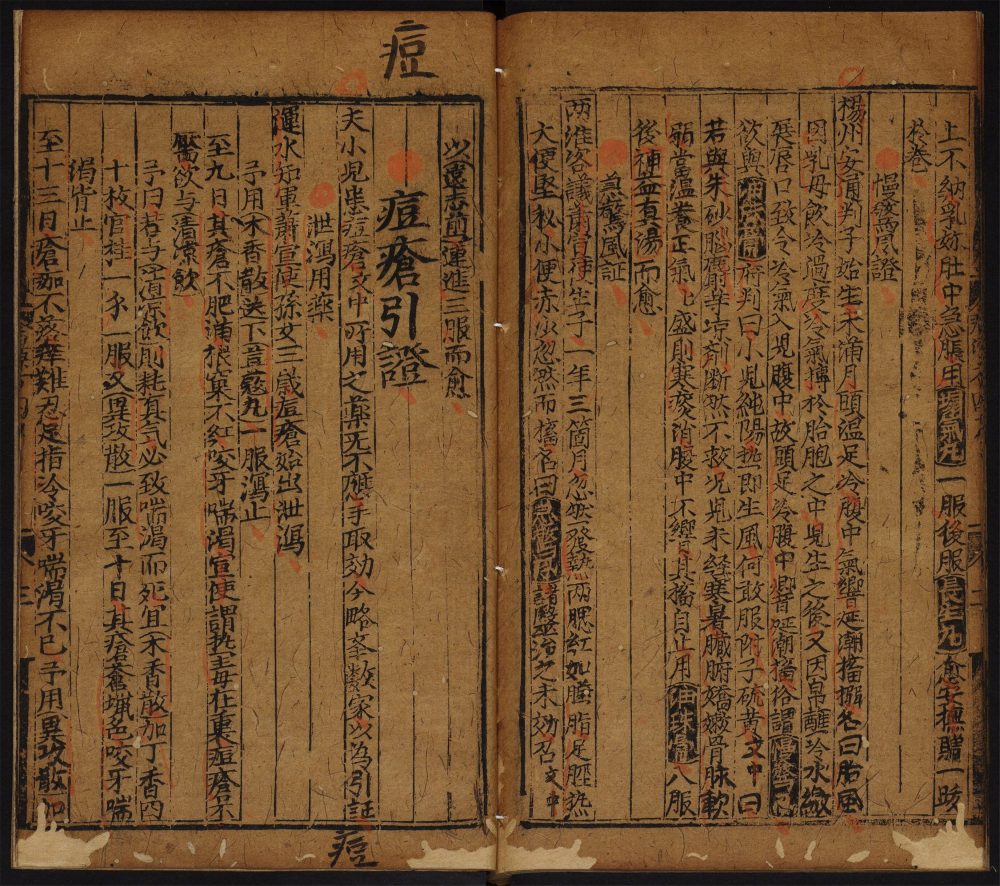 上不納乳妳肚中急脹用塌氣丸一服後服長生丸愈安撫賄一跋
於卷
慢發驚風證
揚州安通判子始生未滿月頭温足冷腹中氣響涎潮搐搦名曰胎風
因乳母飲冷過度冷氣搏於胎胞之中兒生之後又因帛蘸冷水繳
展唇口致令冷氣入兒腹中故頭足冷腹中響涎潮搐俗謂慢驚
欲與 府判曰小兒純陽熱即生風何敢服附子硫黄文中曰
若與朱砂腦麝等凉劑斷然不救况兒未經寒暑臟腑嬌嫩骨脉軟
弱當温養正氣氣盛則寒痰消腹中不響其搐自止用 八服
後神益有湯而愈
急驚風証
兩淮客議 宣使生子一年三箇月忽然發熱兩腮紅如臙脂足脛熱
大便堅秘小便赤少忽然而搐名曰急驚 諸醫治之未効召文中
以 前 連進三服而愈
痘瘡引證
夫小兒患痘瘡文中所用之藥无不應手取効今略筆數家以為引証
泄瀉用藥
漣水知軍蕭宣使孫女三歲痘瘡始出泄瀉
予用木香散送下荳蔻丸一服瀉止
至九日其瘡不肥滿根窠不紅咬牙喘渴宣使謂熱毒在裏痘瘡不
靨欲与清凉飲
予曰若与清凉飲則耗真氣必致喘渴而死且木香散加丁香四
十枚官桂一 一服又異攻散一服至十日其瘡蒼蠟色咬牙喘
渴皆止
至十三日瘡痂不落痒難忍足指冷咬牙喘渴不已予用異攻散加
痘
痘